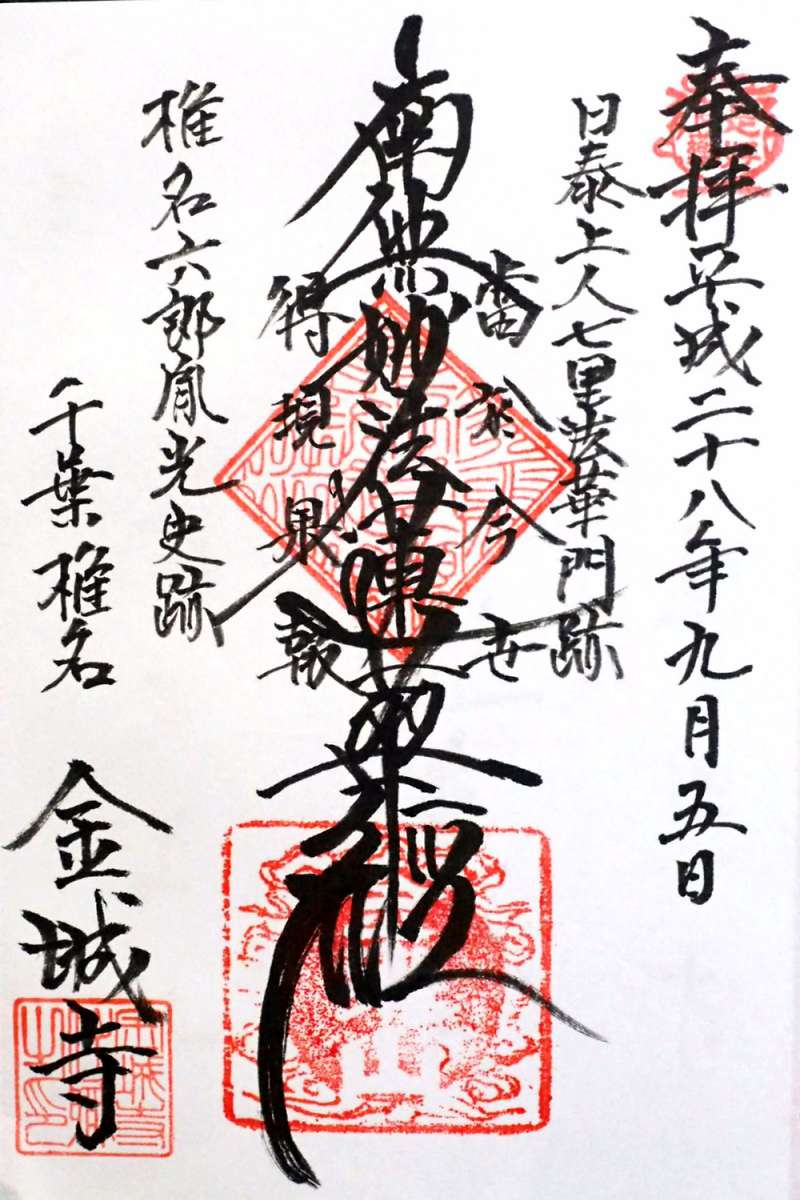 奉拝 平成二十八年九月五日
日泰上人七里法華門跡
當於今世
南無妙法蓮華経
得現果報
椎名六郎胤光史跡
千葉椎名 金城寺